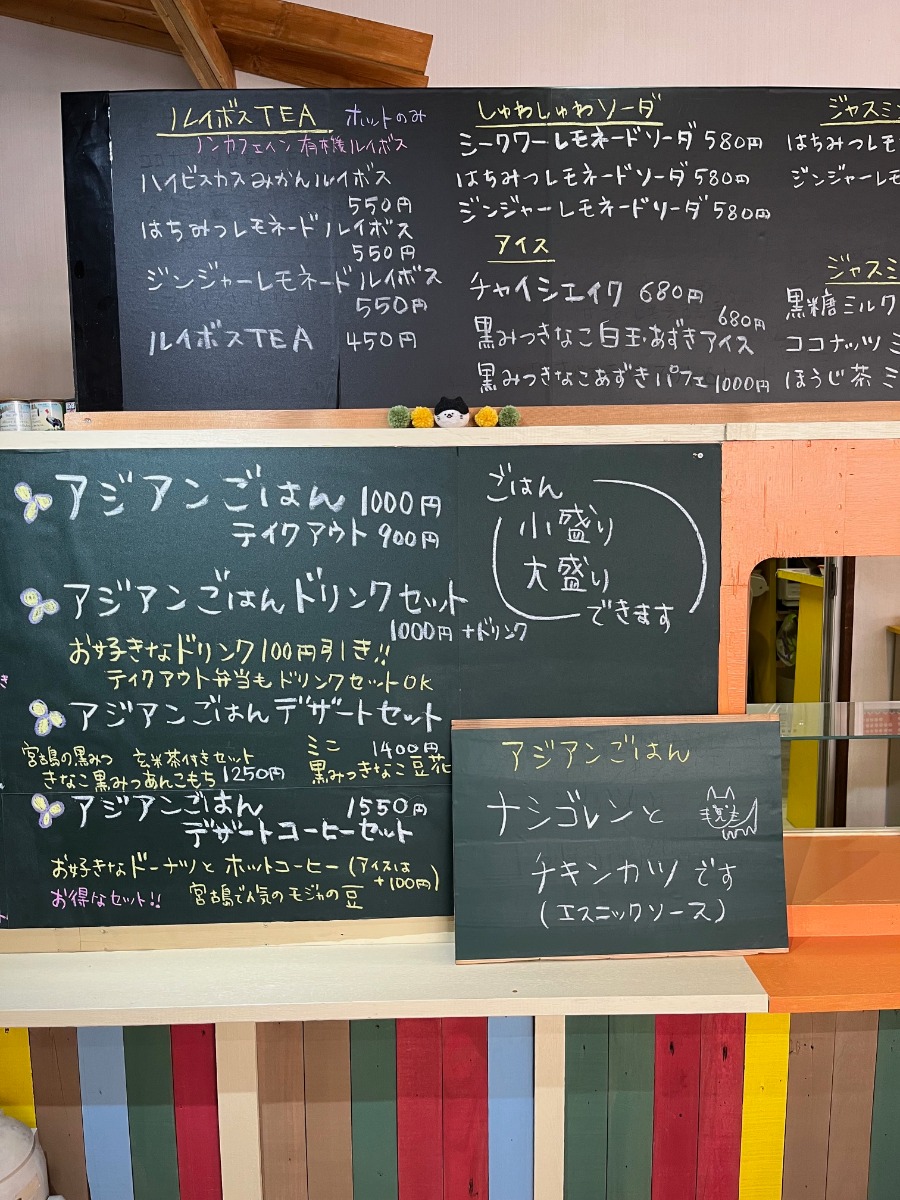 ルイボスTEA ホットのみ
ノンカフェイン 有機ルイボス
ハイビスカスみかんルイボス
550円
はちみつレモネードルイボス
550円
ジンジャーレモネードルイボス
550円
ルイボスTEA 450円
しゅわしゅわソーダ
シークワーレモネードソーダ 580円
はちみつレモネードソーダ 580円
ジンジャーレモネードソーダ 580円
アイス
チャイシェイク 680円
680円
黒みつきなこ白玉・あずきアイス
黒みつきなこあずきパフェ 1000円
ジャスミン
はちみつレモ
ジンジャーレモ
ジャスミ
黒糖ミルク
ココナッツミ
ほうじ茶ミ
アジアンごはん 1000円
テイクアウト 900円
アジアンごはんドリンクセット
1000円+ドリンク
お好きなドリンク100円引き!!
テイクアウト弁当もドリンクセットOK
アジアンごはんデザートセット
宮古島の黒みつ 玄米茶付きセット
きなこ黒みつあんこもち 1250円
ミニ 1400円
黒みつきなこ豆花
アジアンごはん 1550円
デザートコーヒーセット
お好きなドーナツとホットコーヒー(アイスは
+100円)
お得なセット!! 宮古島で人気のモジカの豆
ごはん
小盛り
大盛り
できます
アジアンごはん
ナシゴレンと
チキンカツです
(エスニックソース)